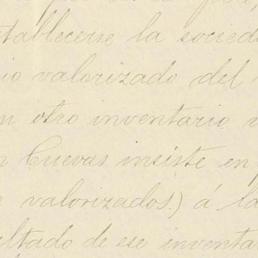 establecerse la socied
io valorizado del
n otro inventario
n Cuevas insiste en
valorizados.) á la
ultado de ese inventa